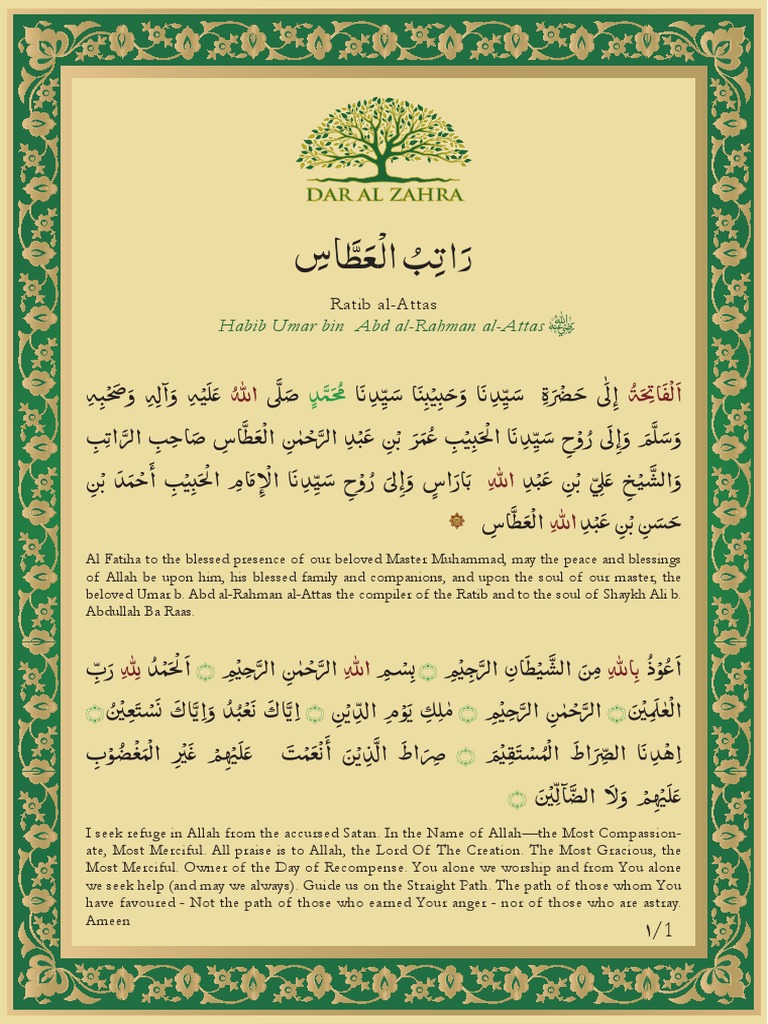 DAR AL ZAHRA
رَاتِبُ الْعَطَّاسِ
Ratib al-Attas
Habib Umar bin Abd al-Rahman al-Attas ﷲ رضي الله عنه
اَلْفَاتِحَةُ إِلَى حَضْرَةِ سَيِّدِنَا وَحَبِيْبِنَا سَيِّدِنَا مُحَمَّدٍ صَلَّى اللهُ عَلَيْهِ وَآلِهِ وَصَحْبِهِ
وَسَلَّمَ وَإِلَى رُوْحِ سَيِّدِنَا الْحَبِيْبِ عُمَرَ بْنِ عَبْدِ الرَّحْمٰنِ الْعَطَّاسِ صَاحِبِ الرَّاتِبِ
وَالشَّيْخِ عَلِيِّ بْنِ عَبْدِ اللهِ بَارَاسٍ وَإِلىَ رُوْحِ سَيِّدِنَا الْإِمَامِ الْحَبِيْبِ أَحْمَدَ بْنِ
حَسَنِ بْنِ عَبْدِ اللهِ الْعَطَّاسِ
Al Fatiha to the blessed presence of our beloved Master Muhammad, may the peace and blessings
of Allah be upon him, his blessed family and companions, and upon the soul of our master, the
beloved Umar b. Abd al-Rahman al-Attas the compiler of the Ratib and to the soul of Shaykh Ali b.
Abdullah Ba Raas.
اَعُوْذُ بِاللهِ مِنَ الشَّيْطَانِ الرَّجِيْمِ ۝ بِسْمِ اللهِ الرَّحْمٰنِ الرَّحِيْمِ ۝ اَلْحَمْدُ لِلّٰهِ رَبِّ
الْعٰلَمِيْنَ ۝ الرَّحْمٰنِ الرَّحِيْمِ ۝ مٰلِكِ يَوْمِ الدِّيْنِ ۝ اِيَّاكَ نَعْبُدُ وَاِيَّاكَ نَسْتَعِيْنُ ۝
اِهْدِنَا الصِّرَاطَ الْمُسْتَقِيْمَ ۝ صِرَاطَ الَّذِيْنَ أَنْعَمْتَ عَلَيْهِمْ غَيْرِ الْمَغْضُوْبِ
عَلَيْهِمْ وَلَا الضَّآلِّيْنَ ۝
I seek refuge in Allah from the accursed Satan. In the Name of Allah—the Most Compassion-
ate, Most Merciful. All praise is to Allah, the Lord Of The Creation. The Most Gracious, the
Most Merciful. Owner of the Day of Recompense. You alone we worship and from You alone
we seek help (and may we always). Guide us on the Straight Path. The path of those whom You
have favoured - Not the path of those who earned Your anger - nor of those who are astray.
Ameen
١/1